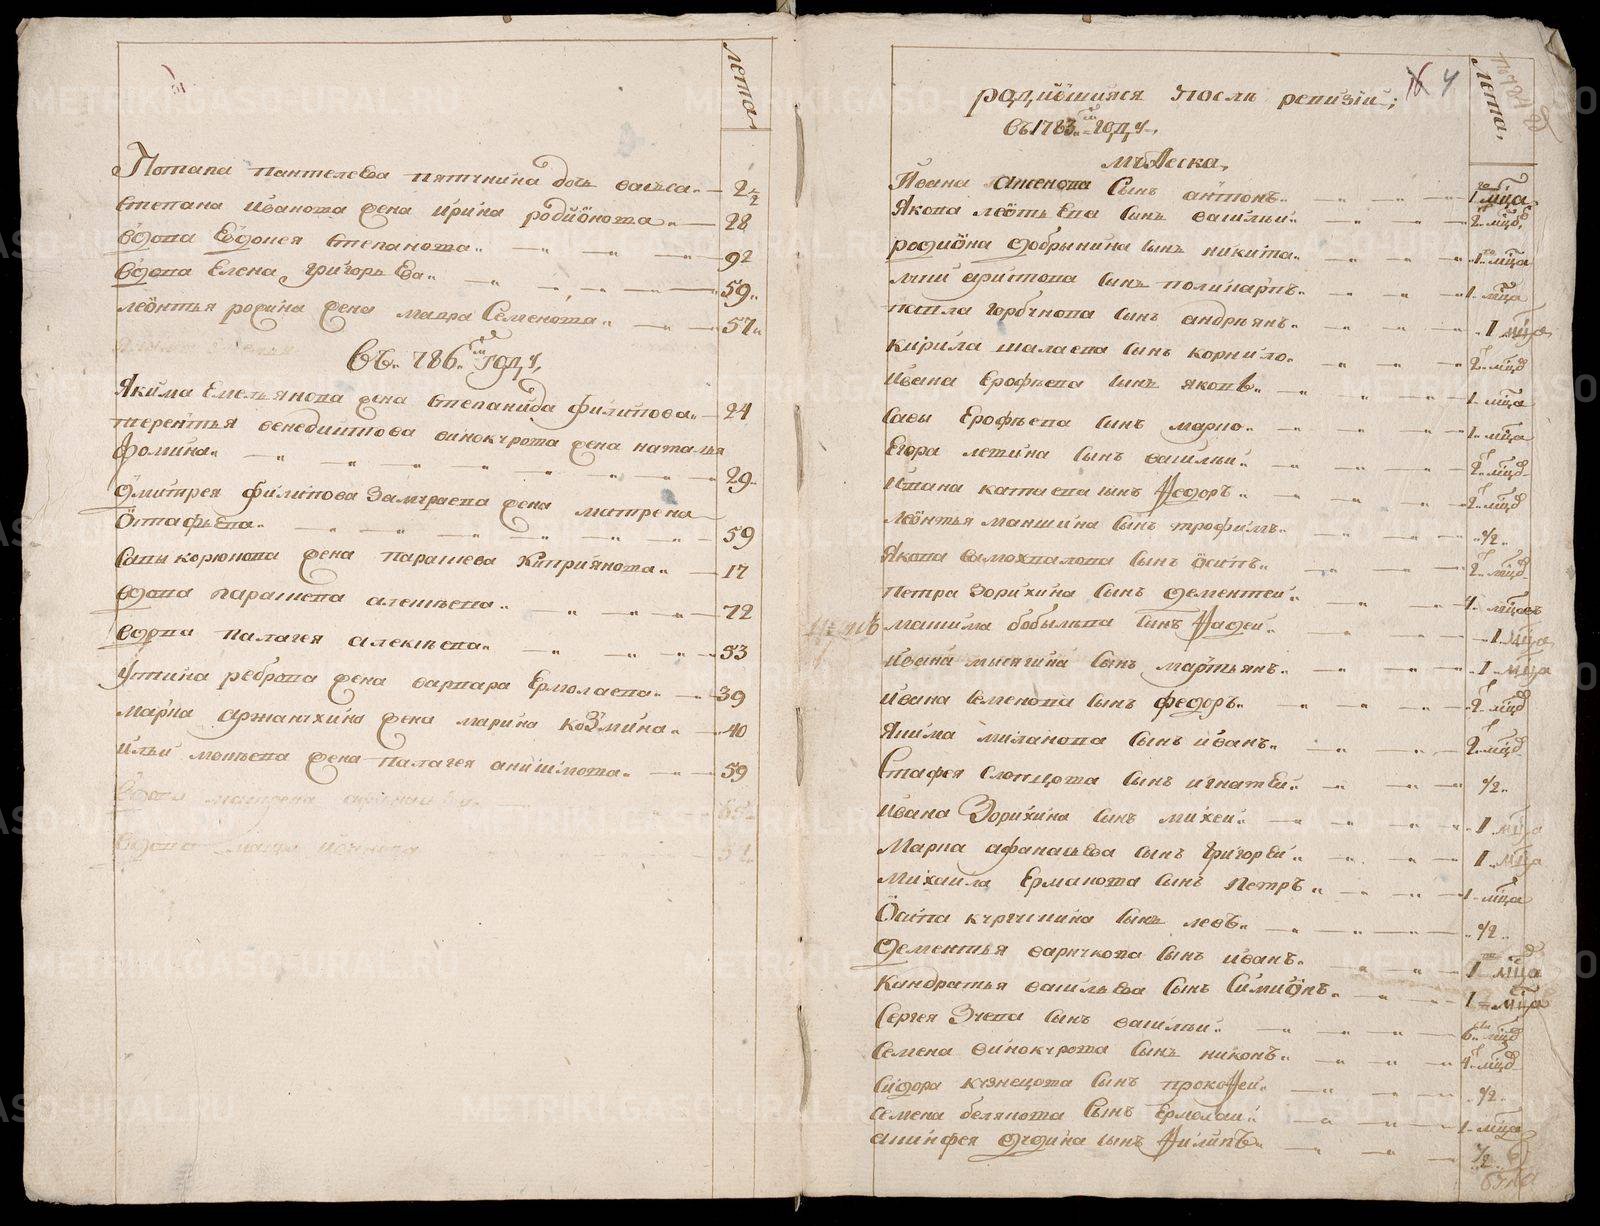 лета
Потапа Пантелеева пятунина дочь васса 2 1/2
Степана Иванова жена Ирина родионова 28
вдова Евдокея Степанова 92
вдова Елена Григорьева 59
леонтья родина жена мавра Семенова 57
въ 786м году
Якима Емельянова жена Степанида филипова 24
терентья венедиктова винокурова жена наталья
фомина 29
дмитрея филипова Замураева жена матрена
Остафьева 59
Савы корюкова жена парасковя Киприянова 17
вдова парасковя алексеева 72
вдова палагея алексеева 53
Устина реброва жена варвара Ермолаева 39
марка аржанухина жена марина козмина 40
ильи мокеева жена палагея анисимова 59
Вдова матрена 65
Вдова мавра 52
родившияся после ревизии
въ 1783м году
мужеска
лета
4
Ивана Аксенова Сынъ антонъ 1 мца
Якова леонтьева сынъ василеи 2 мцд
родиона добрынина сынъ никита 1 мца
сынъ поликарпъ 1 мца
павла горбунова сынъ андреянъ 1 мца
кирила шалаева сынъ корнило 2 мцд
Ивана Ерофеева сынъ яковъ 1 мца
Савы Ерофеева сынъ марко 1 мца
Егора летина сынъ василеи 2 мцд
сынъ федоръ 2 мцд
леонтья маншина сынъ трофимъ 1/2
Якова самохвалова сынъ осипъ 2 мцд
петра Зорихина сынъ дементеи 4 мцовъ
максима бобылева сынъ фадеи 1 мца
ивана мысягина сынъ мартьянъ 1 мца
ивана семенова сынъ федоръ 2 мцд
Якима миланова сынъ иванъ 2 мцд
Стафея слопцова сынъ игнатеи 1/2
ивана Зорихина сынъ михеи 1 мца
Марка афанасьева сынъ григореи 1 мца
михаила Ерманова сынъ петръ 1 мца
Осипа кургунина сынъ левъ 1/2
Дементья варнукова сынъ иванъ 1 мца
Кондратья васильева сынъ Симионъ 1 мца
Сергея Зуева сынъ василеи 6 мцд
Семена винокурова сынъ никонъ 4 мцд
Сидора кузнецова сынъ прокофеи 1/2
Семена белякова сынъ Ермолаи 1 мца
акинфея дудина сынъ филипъ 1/2